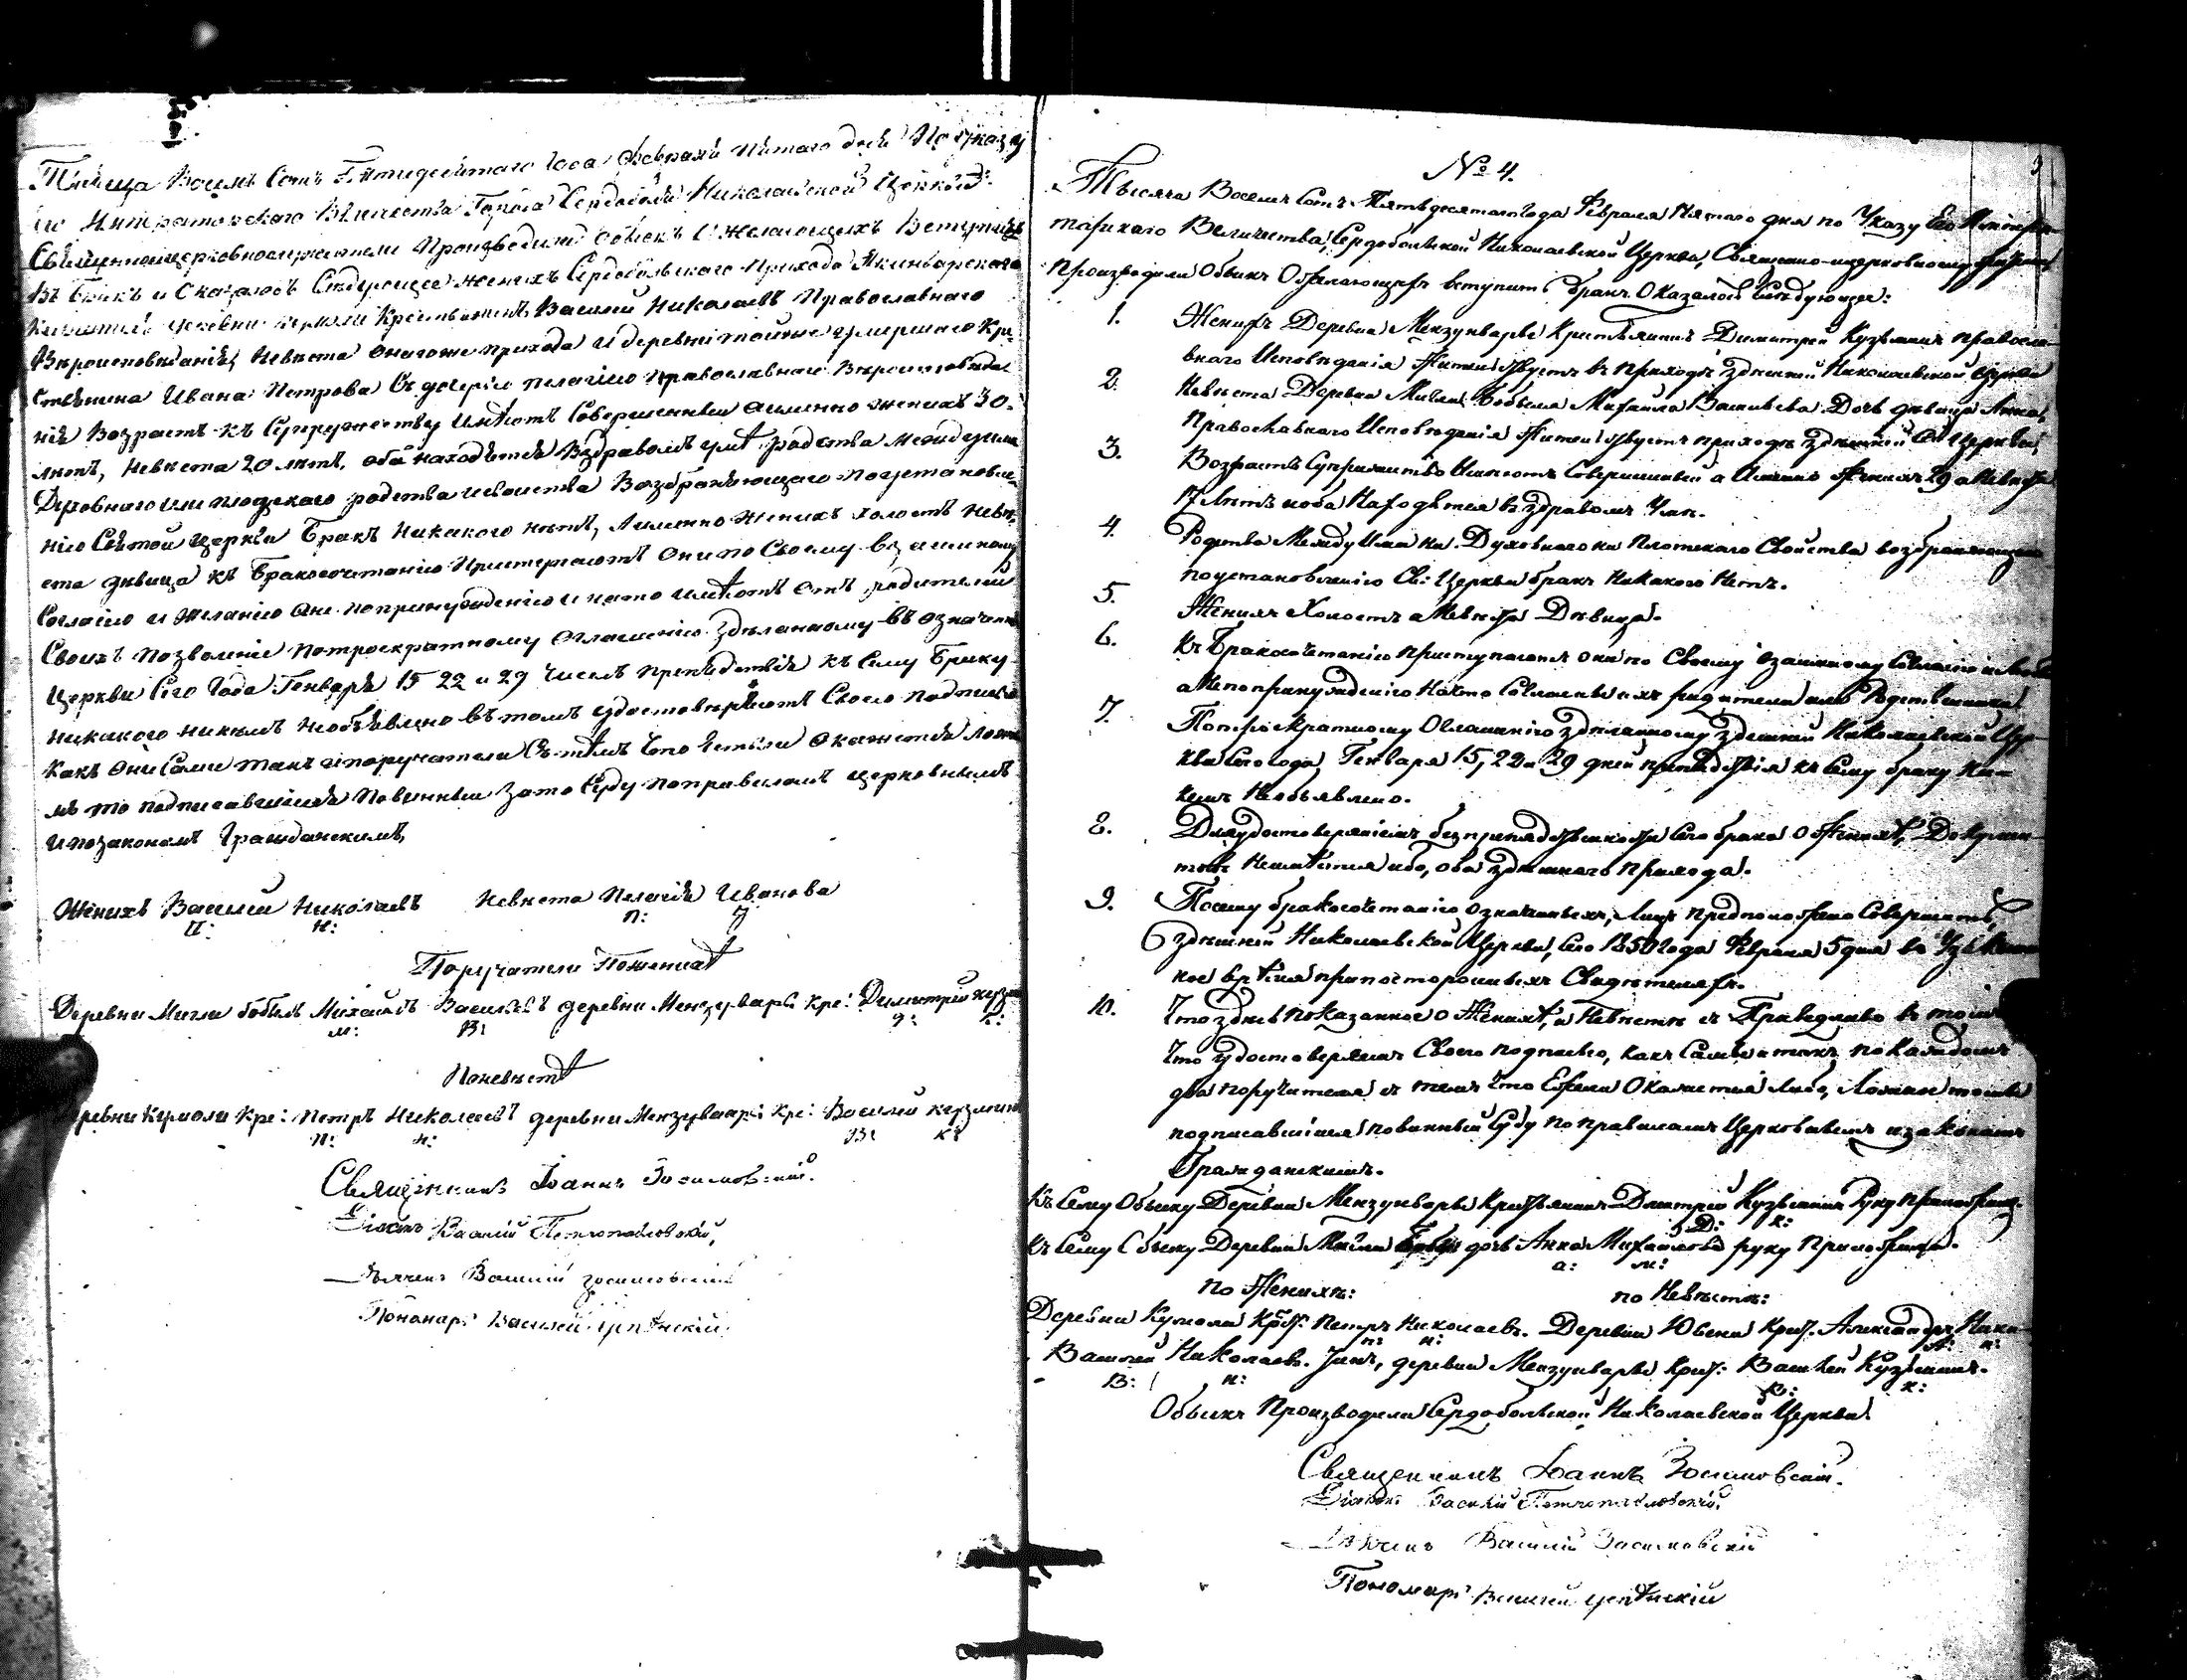 Тысяща Восемь Сотъ Пятидесятаго Года Февраля пятаго дня По Указу
Его Императорскаго Величества Города Сердоболя Николаевской Церкви
Священноцерковнослужители Производили обыскъ О Желающихъ Вступить
Въ Бракъ и Оказалось Следующее женихъ Сердобольскаго Прихода
деревни Кермоли Крестьянинъ Василий Николаевъ Православнаго
Вѣроисповѣданія, Невѣста Онагоже прихода и деревни тойже умершаго Кре-
стьянина Ивана Петрова Съ дочерію Пелагіею православнаго Вѣроисповѣда
нія Возрастъ къ Супружеству Имѣютъ Совершенный аименно женихъ 30.
лѣтъ, Невѣста 20 лѣтъ, оба находятся Вздравомъ умѣ родства между ими
Духовнаго или плотскаго родства исвойства Возбраняющаго поустановле
нію Святой церкви Бракъ Никакого нѣтъ, Аименно Женихъ холостъ невѣ
ста дѣвица къ Бракосочетанію Приступаютъ Они по Своему взаимному
Согласію и Желанію Ане попринужденію и нато имѣютъ Отъ родителей
Своихъ позволеніе потроекратному Оглашенію Здѣланному въ означенной
Церкви Сего Года Генваря 15 22 и 29 Чиселъ препядствія къ Сему Браку
никакого никѣмъ Необъявлено въ томъ удостовѣряютъ Своею подписью
Какъ Они Сами такъ ипоручатели Съ тѣмъ Что Естьли Окажется Ложно
мъ то подписавшіися Повинны Зато Суду поправиламъ церковнымъ
ипозаконамъ Гражданскимъ,
Женихъ Василей Николаевъ Невѣста Пелагія Иванова
В: Н: П: И
Поручатели Поженихѣ
Деревни Мигли бобыль Михаилъ Васильевъ деревни Мензувары кре: Димитрий кузм
м: В: д: к:
Поневѣстѣ
деревни Кермоли Кре: Петръ Николаевъ деревни Мензувары кре: Василий кузмин
п: н: В: к:
Священникъ Іоаннъ Зосимовскій.
Діаконъ Василій Петропавловскій,
Дьячекъ Василій Зосимовскій
Пономарь Василей
№ 4.
Тысяча Восемь Сотъ Пятьдесятаго Года Февраля Пятаго дня по Указу Его Императ
торскаго Величества, Сердобольской Николаевской Церкви, Священно-церковнослужители
Производили Обыскъ О желающихъ вступить бракъ Оказалось Слѣдующее:
1. Женихъ Деревни Мензунварьи Крестьянинъ Димитрей Кузьминъ православ
внаго Исповѣданія Жительствуетъ въ Приходѣ здѣшней Николаевской церкви
2. Невѣста Деревни Мигли, Бобыля Михайла Васильева Дочь дѣвица Анна,
Православнаго Исповѣданія Жительствуетъ приходѣ здѣшней Церкви,
3. Возрастъ Супружество Имѣютъ Совершенный а Именно Женихъ 29 а Невѣста
17 Лѣтъ иоба Находятся въ здравомъ Умѣ.
4. Родства Между Ими ни Духовнаго ни Плотскаго Свойства возбраняющаго
поустановленію Св: Церкви бракъ Никакого Нетъ.
5. Женихъ Холостъ а Невѣста Дѣвица.
6. Къ Бракосочетанію Приступаютъ они по Своему Взаимному Согласію и
а Непопринужденію Нато Согласны ихъ родители или Родственники.
7. Потроекратному Оглашенію здѣланному здѣшней Николаевской Цер
кви Сего года, Генваря 15, 22 и 29 дней препядствія къ Сему браку ни-
кемъ Необъявлено.
8. Дляудостоверенія безпрепядственности Сего брака О Женихѣ, Докумен-
товъ Неимѣется ибо, оба здѣшняго Прихода.
9. Посему бракосочетанію означенныхъ Лицъ предположено Совершить,
здѣшней Николаевской Церкви, Сего 1850 года Февраля 5 дня во
ное врѣмя припостороннихъ Свидѣтеляхъ.
10. Что здѣсь показанное о Женихѣ, и Невѣстѣ въ томъ
что удостоверяемъ Своею подписью, какъ Сами такъ покаждомъ
два поручителя съ темъ Что Ежели Окажется Либо, Ложно то
подписавшіися повинны Суду по правиламъ Церковнымъ и законамъ
Гражданскимъ.
Къ Сему Обыску Деревни Мензунварьи Крестьянинъ Дмитрей Кузьминъ Руку Приложилъ.
Д: к:
Къ Сему Обыску Деревни Мигли дочь Анна Михайлова руку Приложила.
а: м:
по Женихѣ: по Невѣстѣ:
Деревни Кумоли Крест: Петръ Николаевъ. Деревни Ювени Крест: Александръ Нико
п: н: А: н:
Василей Николаевъ. деревни Мензунварьи Крест: Василей Кузьминъ.
В: н: В: к:
Обыскъ Производили Сердобольской Николаевской Церкви
Священникъ Іоаннъ Зосимовскій.
Діаконъ Василій Петропавловскій,
Дьячекъ Василій Зосимовскій
Пономарь Василей